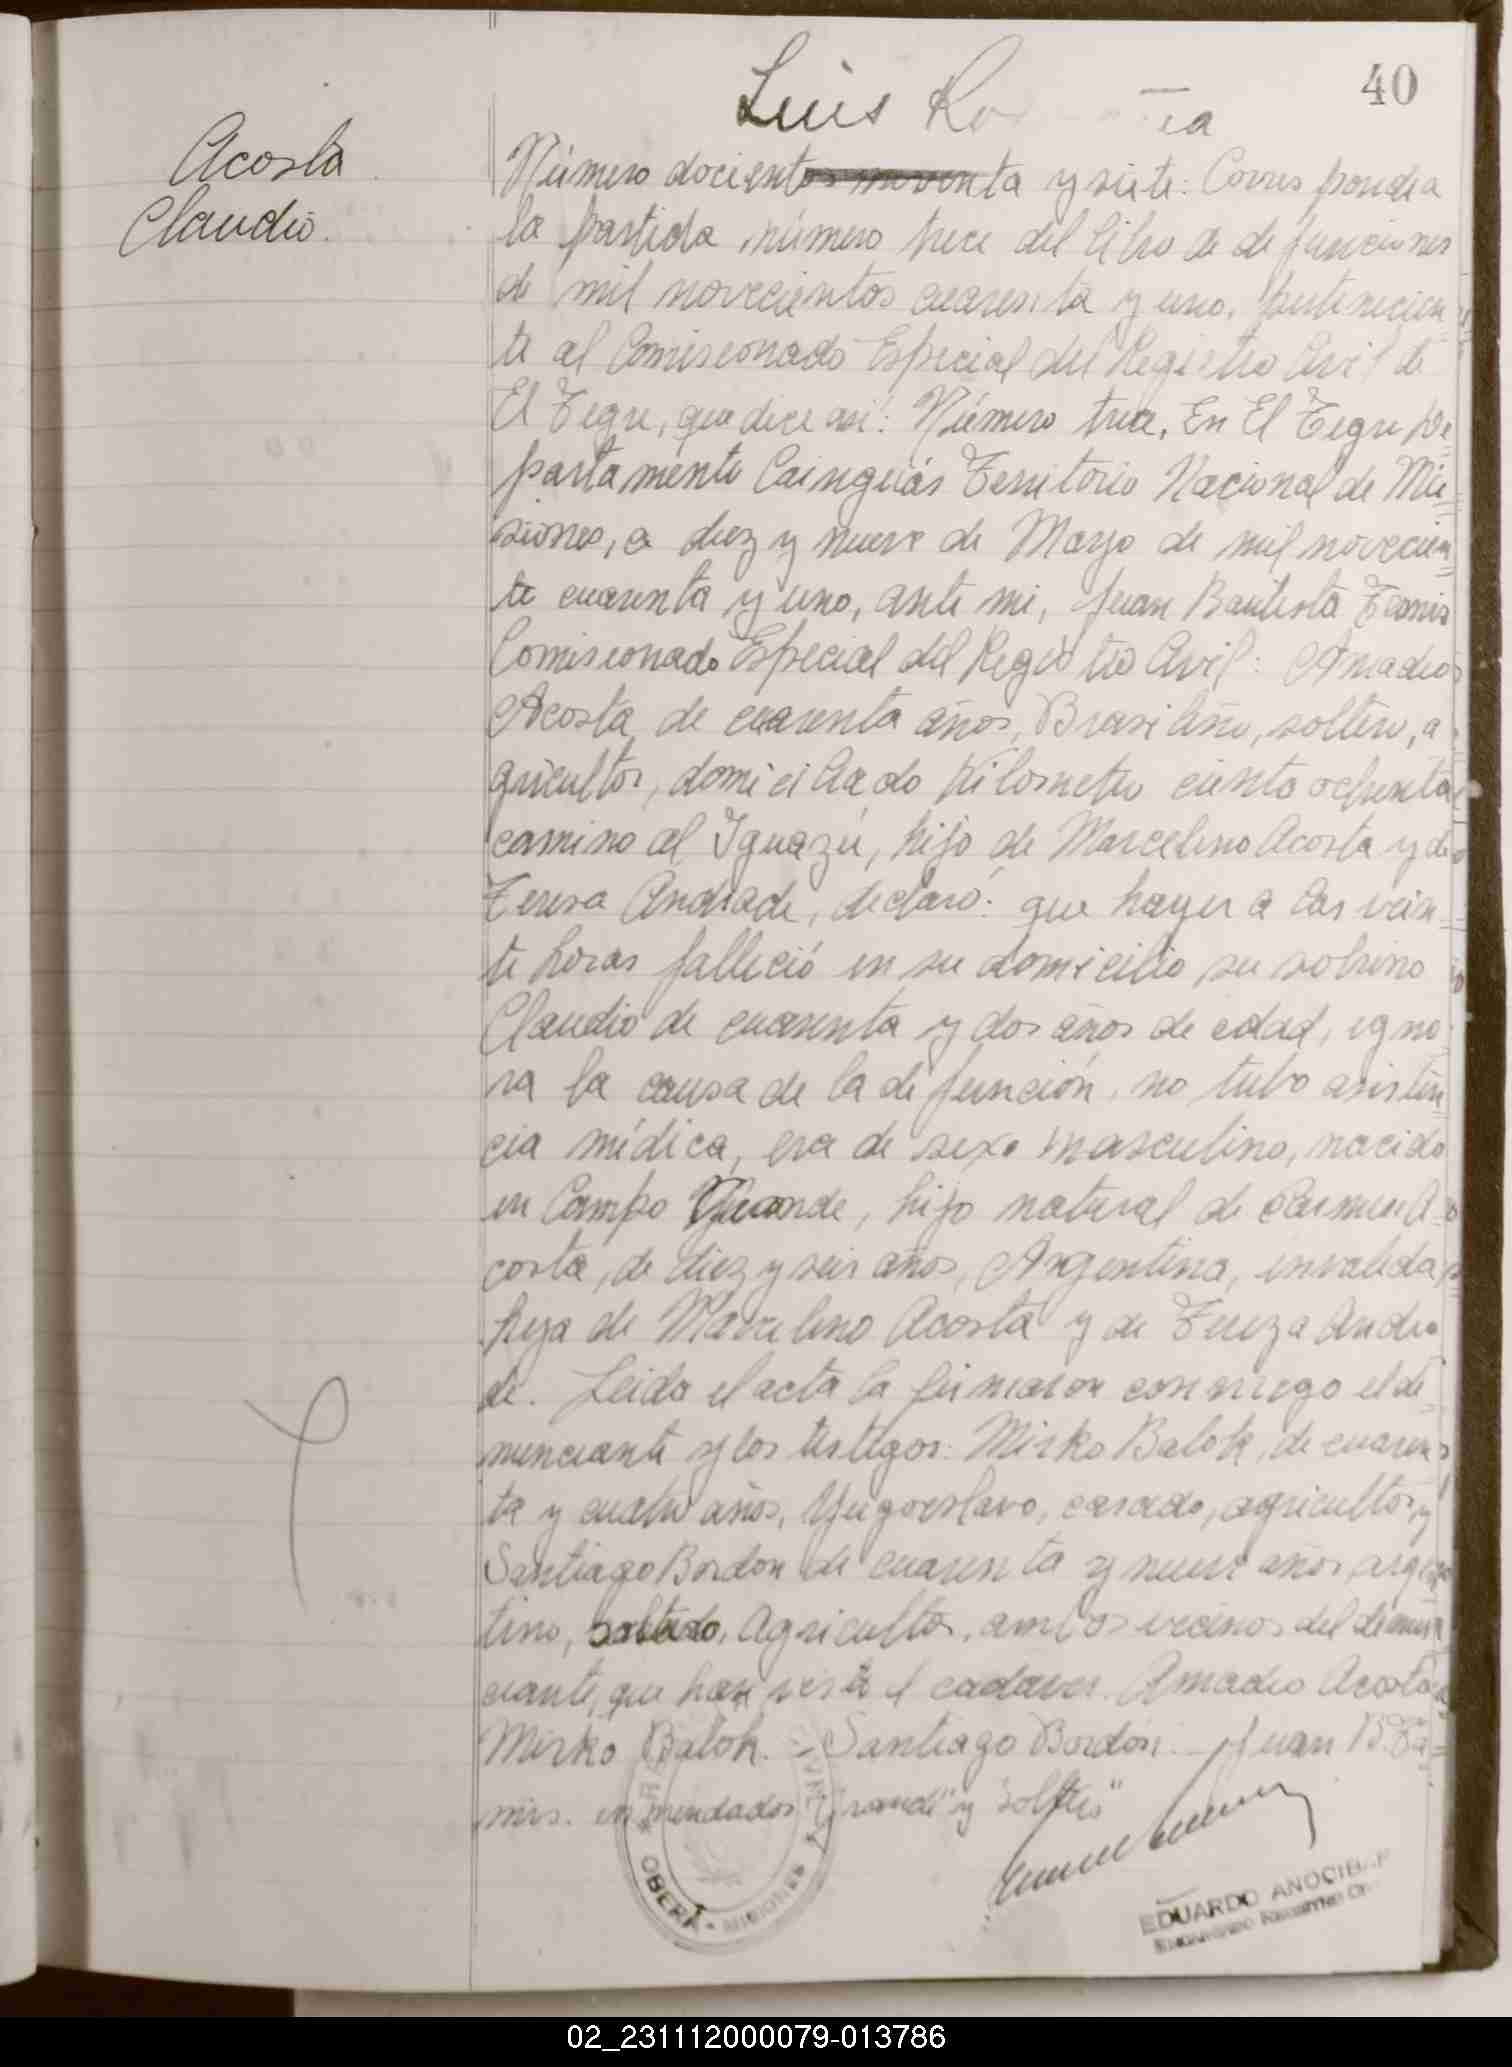 40
Luis
Acosta
Claudio.
Número docientos noventa y siete: Corresponde a
la partida número trece del libro de defunciones
de mil novecientos cuarenta y uno, pertenecien
te al Comisionado Especial del Registro Civil de
El Tigre, que dice así: Número trece. En El Tigre De=
partamento Cainguás Territorio Nacional de Mi=
siones, a diez y nueve de Mayo de mil novecien=
to cuarenta y uno, ante mi, Juan Bautista
Comisionado Especial del Registro Civil: Amadeo
Acosta de cuarenta años, Brasileño, soltero, a
gricultor, domiciliado Kilometro ciento ochenta
camino al Iguazú, hijo de Marcelino Acosta y de
Teresa Andrade, declaró: que hayer a las vein=
te horas falleció en su domicilio su sobrino
Claudio de cuarenta y dos años de edad, igno
ra la causa de la defunción, no tubo asisten=
cia médica, era de sexo masculino, nacido
en Campo Grande, hijo natural de Carmen A
costa, de diez y seis años, Argentina, invalida,
hija de Marcelino Acosta y de Tereza Andra
de. Leida el acta la firmaron conmigo el de=
nunciante y los testigos: Mirko Balok, de cuaren
ta y cuatro años, Yugoeslavo, casado, agricultor, y
Santiago Bordon de cuarenta y nueve años, argen
tino, soltero, agricultor, ambos vecinos del denun
ciante, que han visto el cadaver. Amadeo Acosta
Mirko Balok. - Santiago Bordón. - Juan B. Ta=
mis. enmendados "Grande" y "soltero"
OBERÁ - MISIONES
EDUARDO